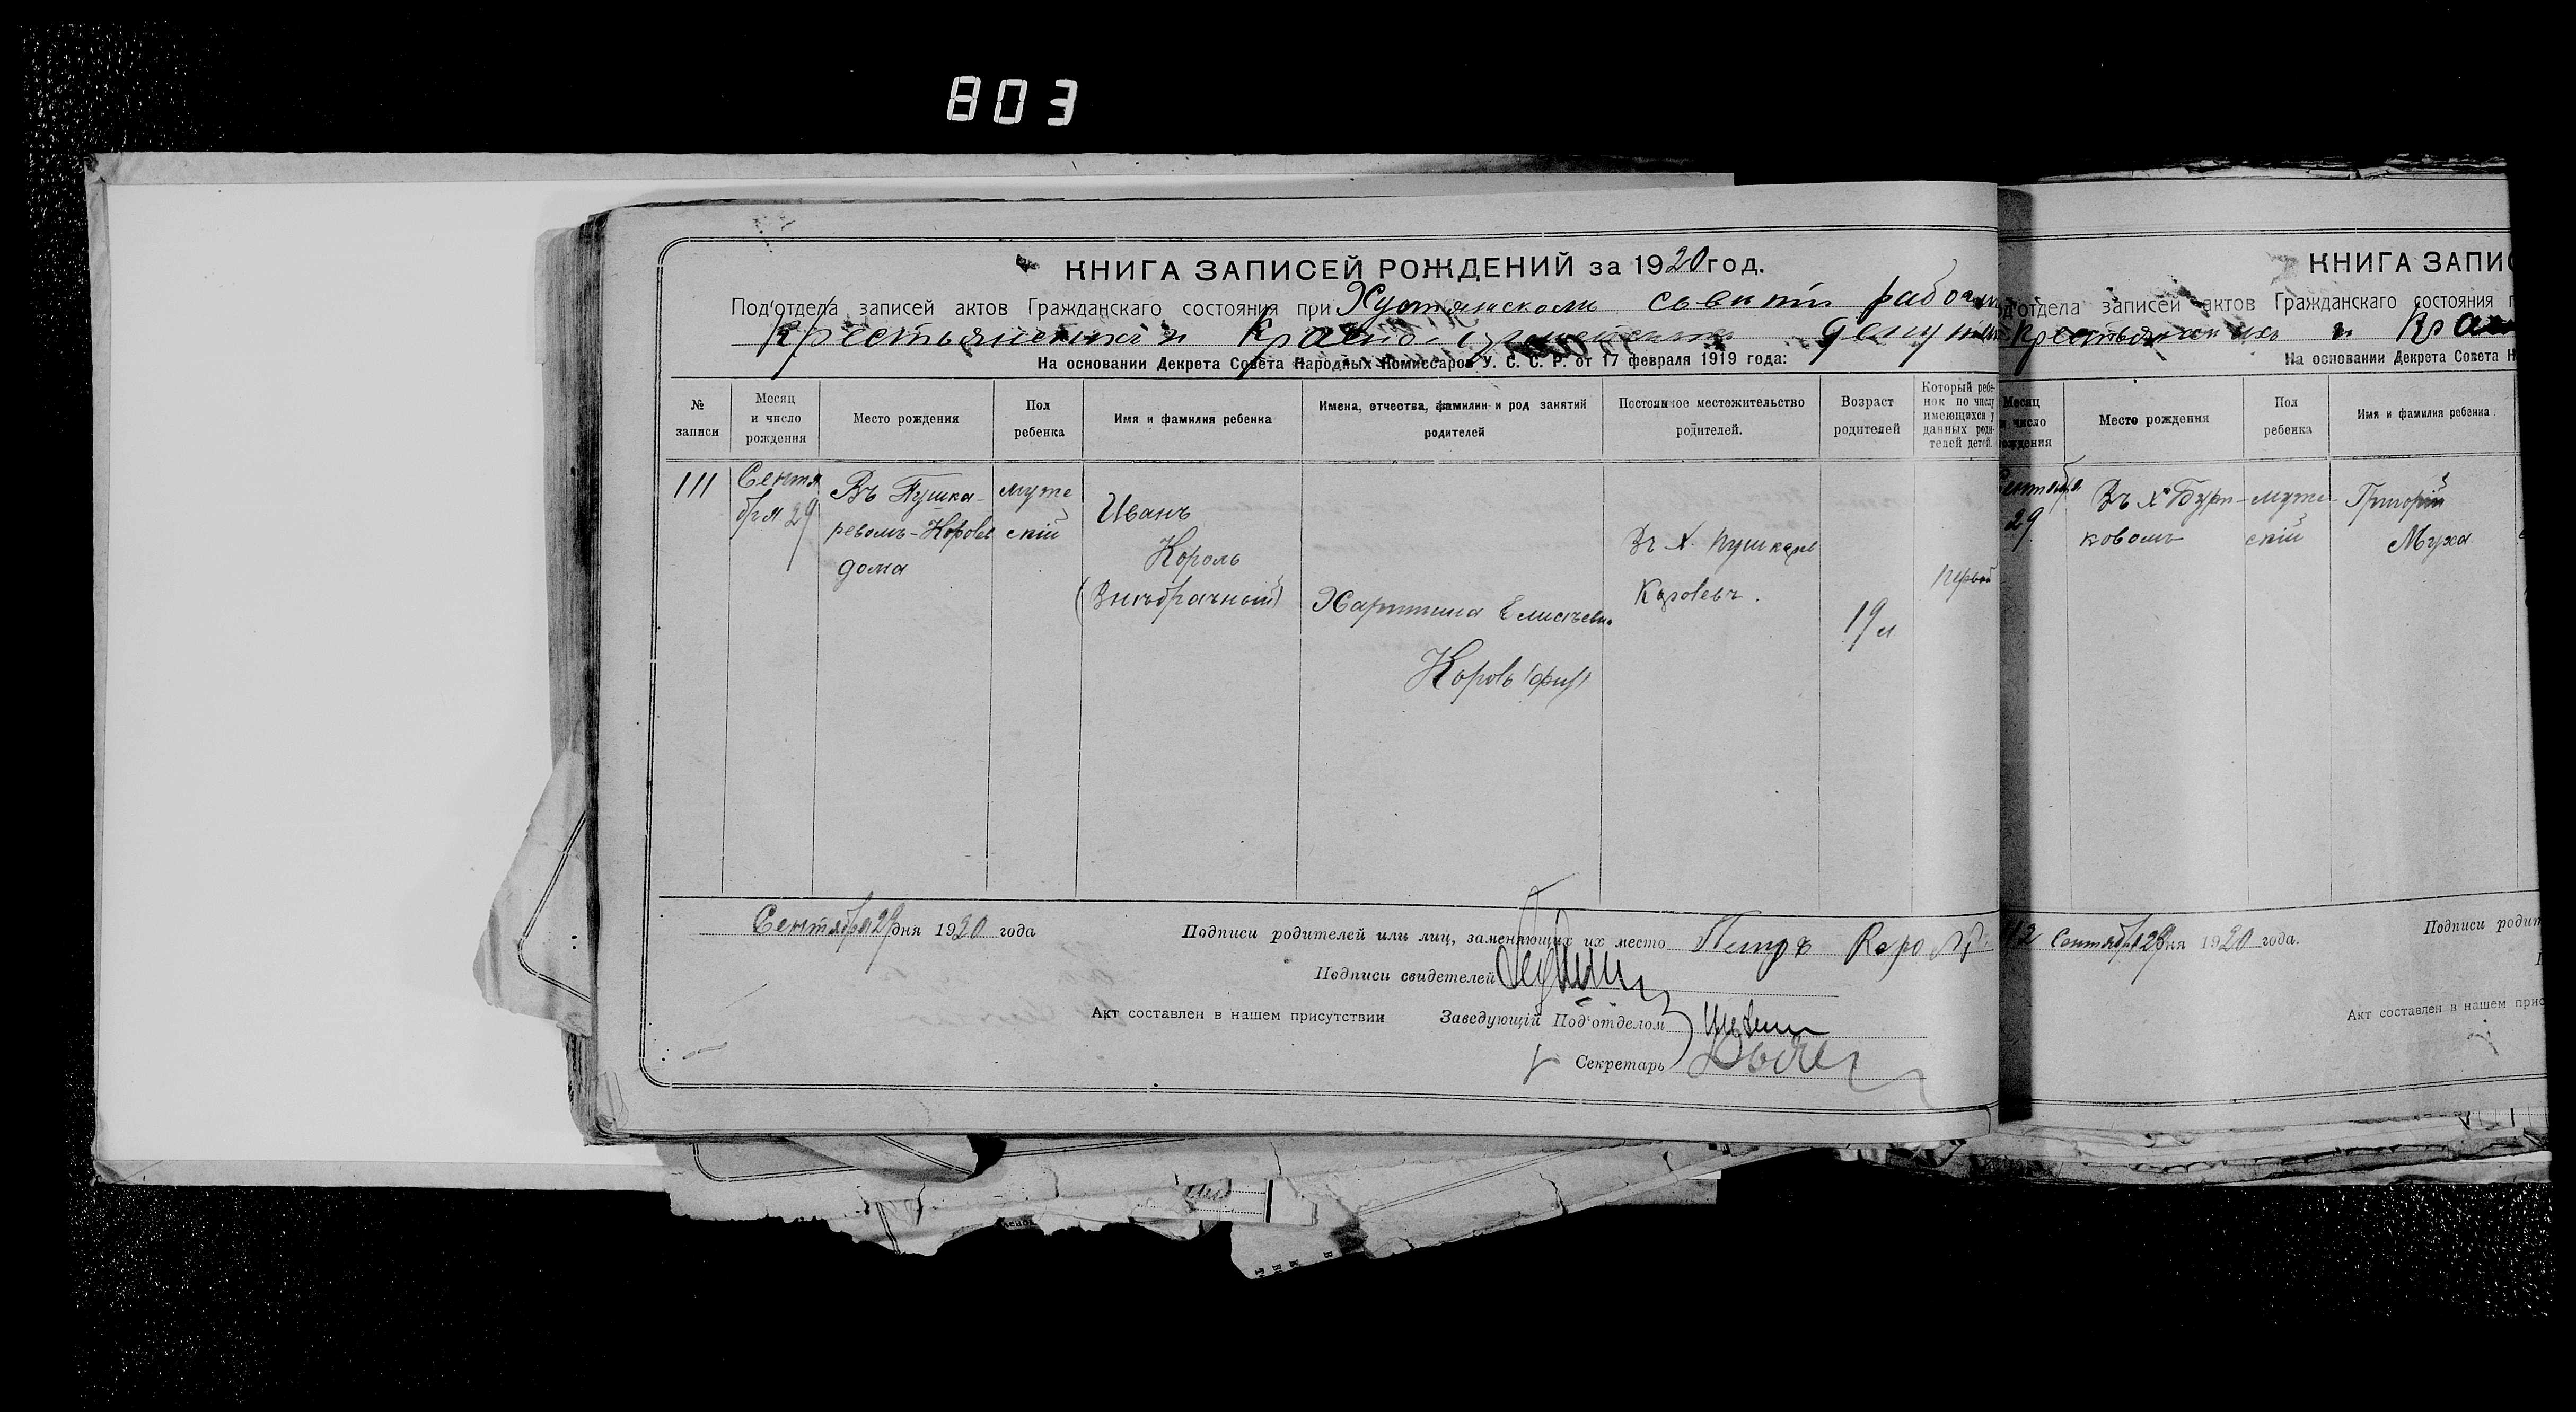 803
КНИГА ЗАПИСЕЙ РОЖДЕНИЙ за 1920 год.
Под'отдела записей актов Гражданскаго состояния при
На основании Декрета Совета Народных Комиссаров У. С. С. Р. от 17 февраля 1919 года:
№ записи
Месяц и число рождения
Место рождения
Пол ребенка
Имя и фамилия ребенка
Имена, отчества, фамилии и род занятий родителей
Постоянное местожительство родителей.
Возраст родителей
Который ребе-
нок по числу
имеющихся у
данных роди-
телей детей.
111
Сентя
бря 29
Въ Пушка-
ревомъ-Королв
дома
муже
скій
Иванъ
Король
(Внѣбрачный)
Харитина Елисѣевн
Король
Въ Х. Пушкаре
Королевъ.
19 л
первый
Сентября 29 дня 1920 года
Подписи родителей или лиц, заменяющих их место Петръ
Подписи свидетелей
Акт составлен в нашем присутствии
Заведующій Под'отделом
Секретарь
КНИГА ЗАПИС
отдела записей актов Гражданскаго состояния п
Крестьянскихъ и
На основании Декрета Совета Н
Месяц
и число
рождения
Место рождения
Пол ребенка
Имя и фамилия ребенка
29
ковомъ
муже
скій
Григорій
Муха
12 Сентября 29 дня 1920 года.
Подписи родит
Акт составлен в нашем прис